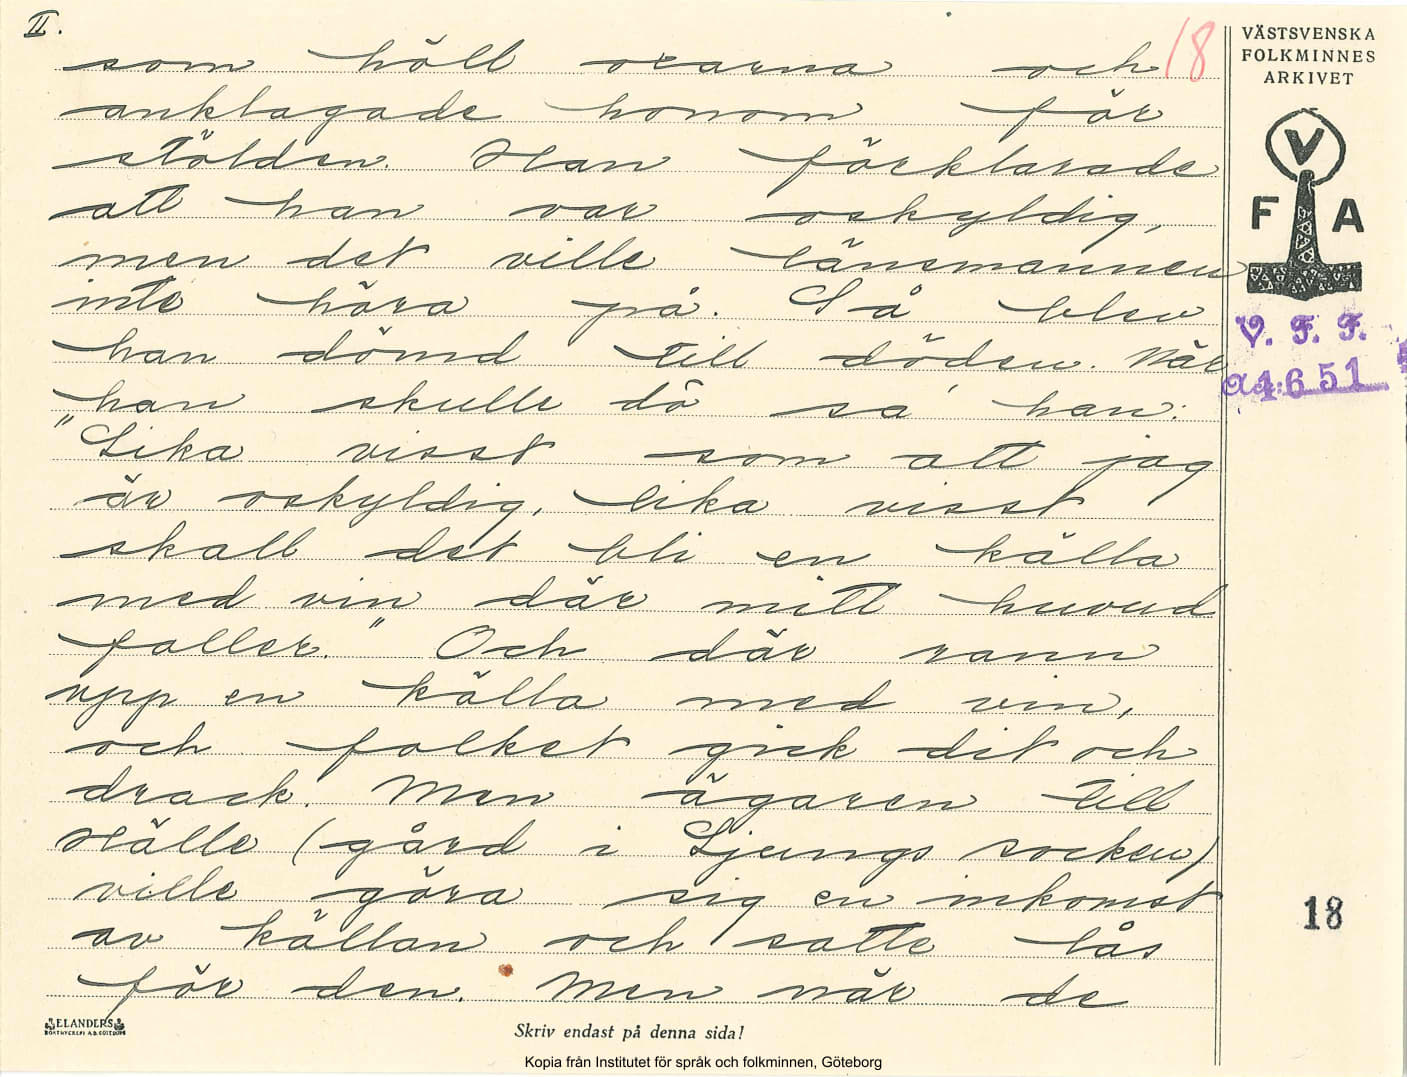 II.
18
som höll oxarna och
anklagade honom för
stölden. Han förklarade
att han var oskyldig,
men det ville länsmannen
inte höra på. Så blev
han dömd till döden. När
han skulle dö sa' han:
"Lika visst som att jag
är oskyldig, lika visst
skall det bli en källa
med vin där mitt huvud
faller." Och där rann
upp en källa med vin,
och folket gick dit och
drack. Men ägaren till
Hälle (gård i Ljungs socken)
ville göra sig en inkomst
av källan och satte lås
för den. Men när de
VÄSTSVENSKA
FOLKMINNES
ARKIVET
V
F A
V. F. F.
Acc. 1651
18
ELANDERS
BOKTRYCKERI A.B. GÖTEBORG
Skriv endast på denna sida!
Kopia från Institutet för språk och folkminnen, Göteborg